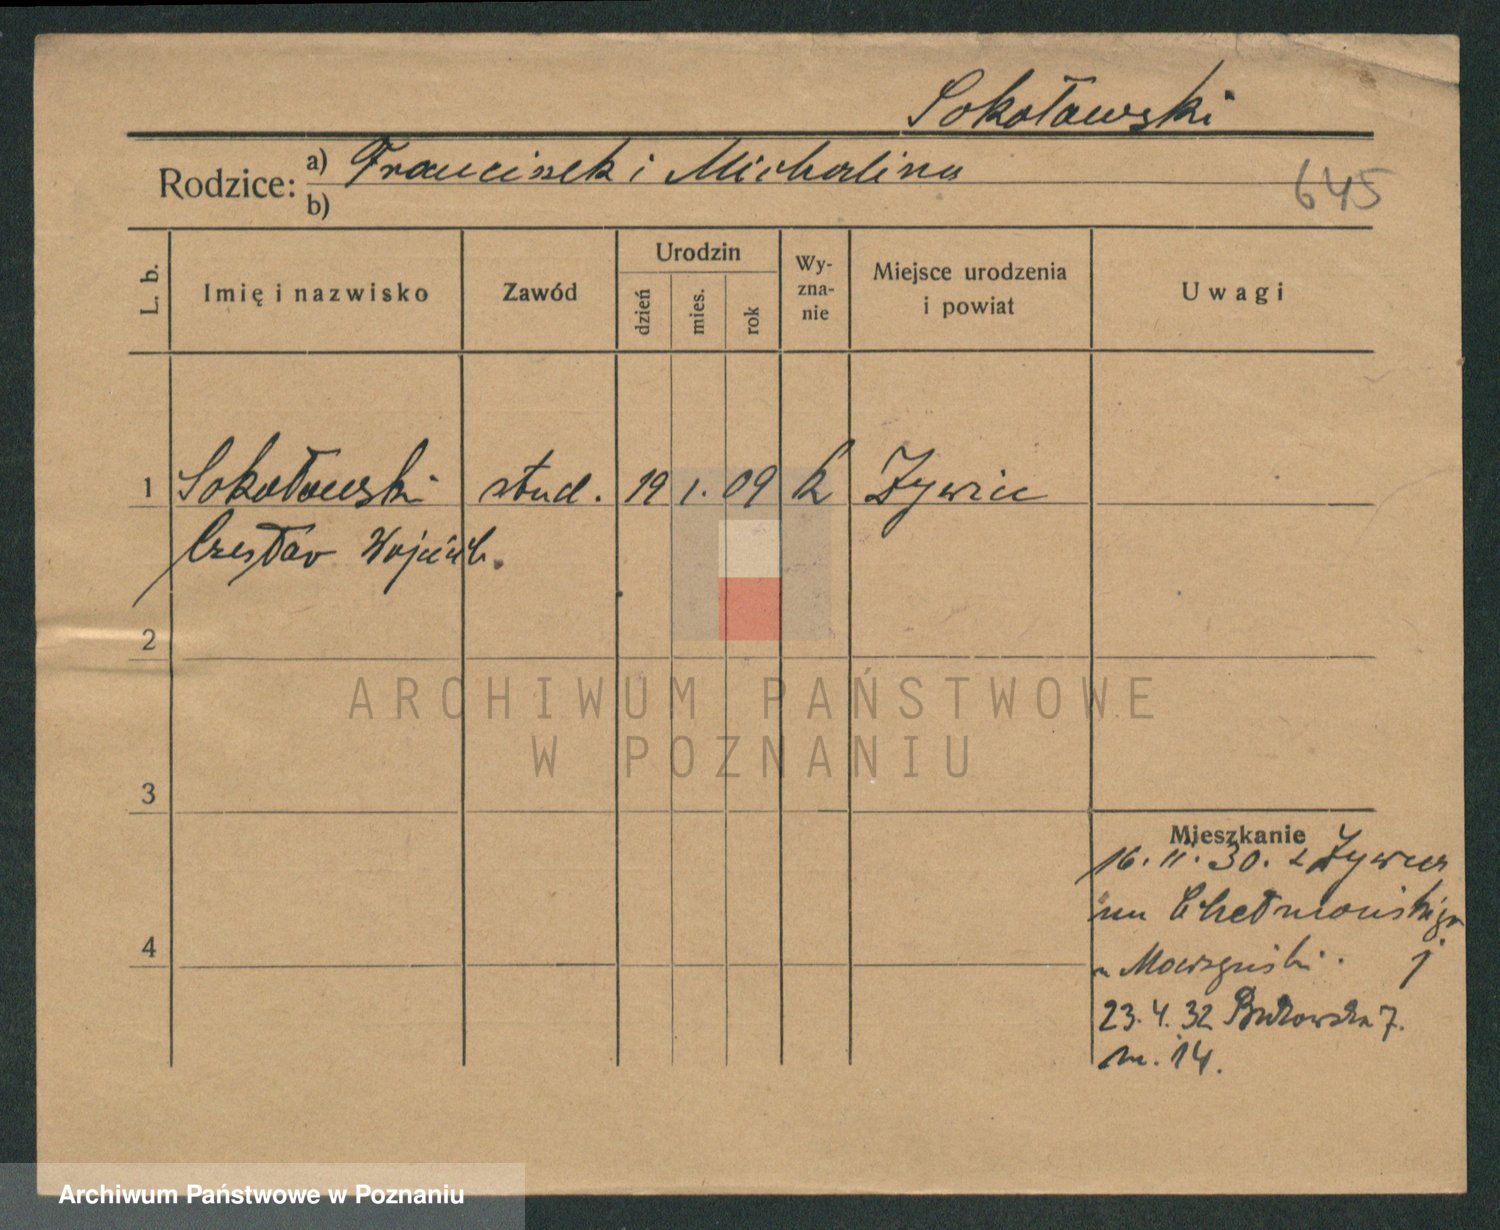 Sokołowski
Rodzice: a) Franciszek i Michalina
b)
645
L. b. Imię i nazwisko Zawód Urodzin dzień mies. rok Wy-zna-nie Miejsce urodzenia i powiat Uwagi
1 Sokołowski stud. 19 1. 09 k Żywiec
Czesław Wojciech.
2
ARCHIWUM PAŃSTWOWE
W POZNANIU
3
Mieszkanie
16. II. 30. z Żywca
Chełmońskiego
4
23. 4. 32 Bukowska 7.
m. 14.
Archiwum Państwowe w Poznaniu